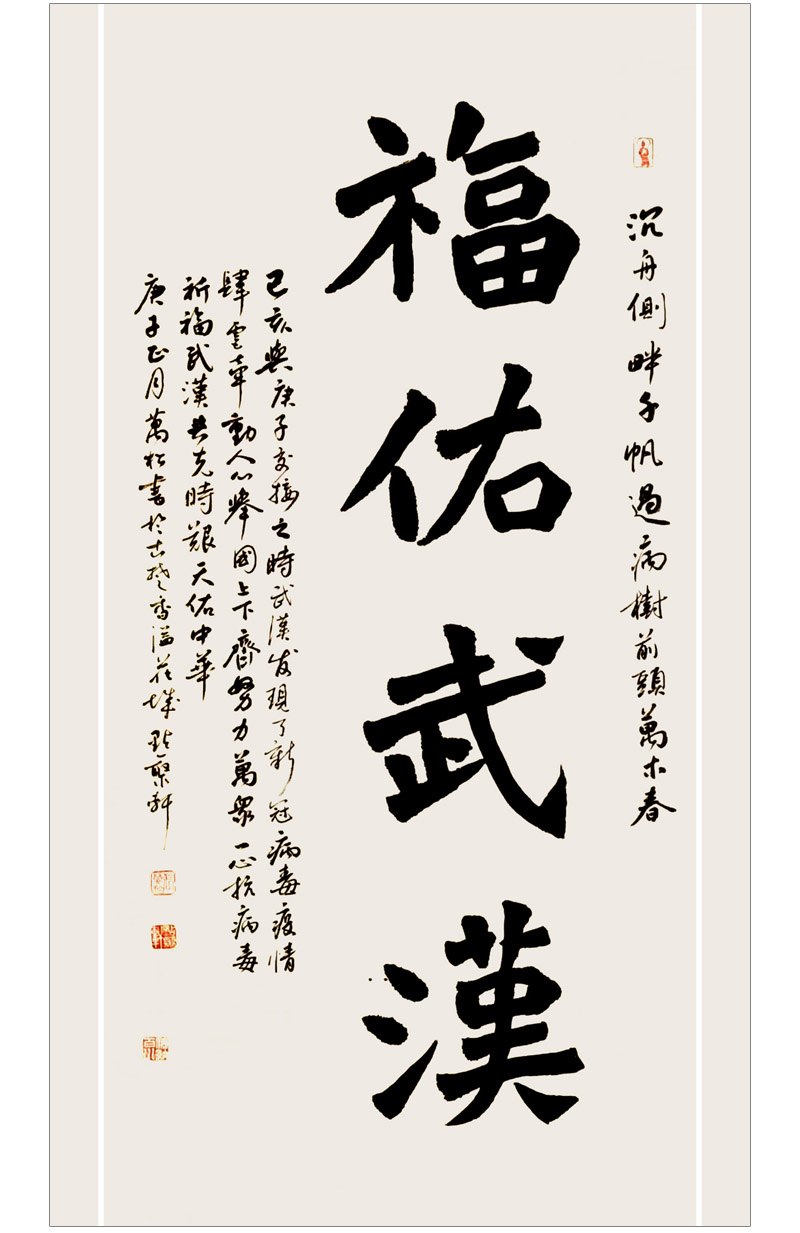 沉舟側畔千帆過病樹前頭萬木春
福佑武漢
己亥與庚子交接之時武漢发現了新冠病毒疫情
肆虐牽動人心舉國上下齊努力萬衆一心抗病毒
祈福武漢共克時艱天佑中華
庚子正月萬松書於古楚香溢花城